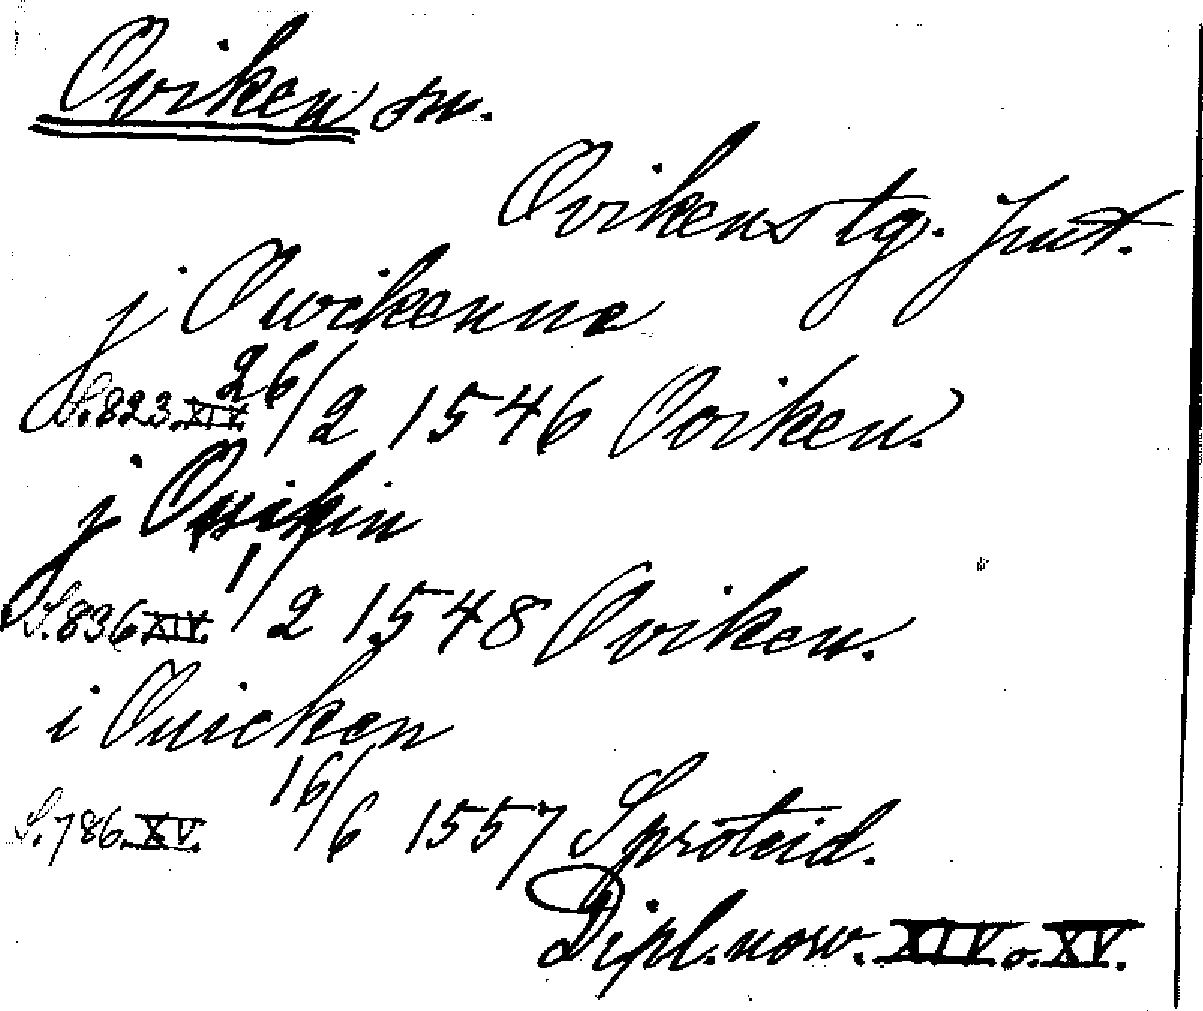 Oviken sn.
Ovikens tg. Jmt.
j Owikenne
S. 823. XIV. 26/2 1546 Oviken.
j Owikin
S. 836 XIV. 1/2 1548 Oviken.
i Ouicken
S. 786. XV. 16/6 1557 Sproteid.
Dipl. norv. XIV o. XV.